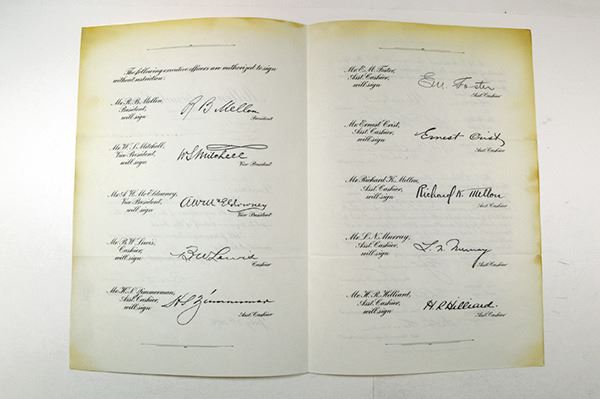 The following executive officers are authorized to sign
without restriction:
Mr. R. B. Mellon,
President,
will sign
R B Mellon
President
Mr. W. S. Mitchell,
Vice President,
will sign
W S Mitchell
Vice President
Mr. A. W. McEldowney,
Vice President,
will sign
A W McEldowney
Vice President
Mr. B. W. Lewis,
Cashier,
will sign
B W Lewis
Cashier
Mr. H. S. Zimmerman,
Asst. Cashier,
will sign
H S Zimmerman
Asst. Cashier
Mr. E. M. Foster,
Asst. Cashier,
will sign
E. M. Foster
Asst. Cashier
Mr. Ernest Crist,
Asst. Cashier,
will sign
Ernest Crist
Asst. Cashier
Mr. Richard K. Mellon,
Asst. Cashier,
will sign
Richard K. Mellon
Asst. Cashier
Mr. L. N. Murray,
Asst. Cashier,
will sign
L. N. Murray
Asst. Cashier
Mr. H. R. Hilliard,
Asst. Cashier,
will sign
H. R. Hilliard.
Asst. Cashier